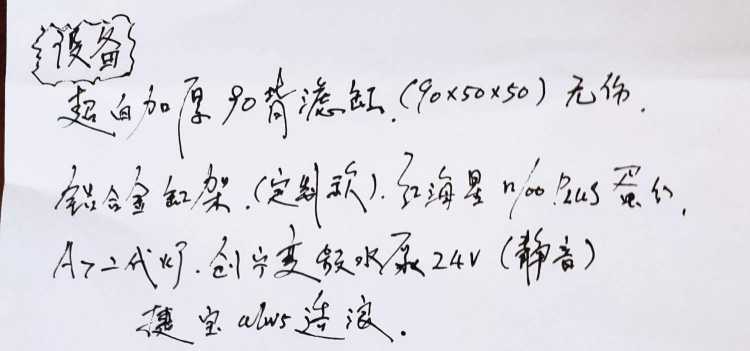 设备
超白加厚90背滤缸.(90×50×50)无伤.
铝合金缸架.(定制款).红海星n100 Plus蛋分,
A7二代灯.创宁变频水泵24V(静音)
捷宝alw5造浪.